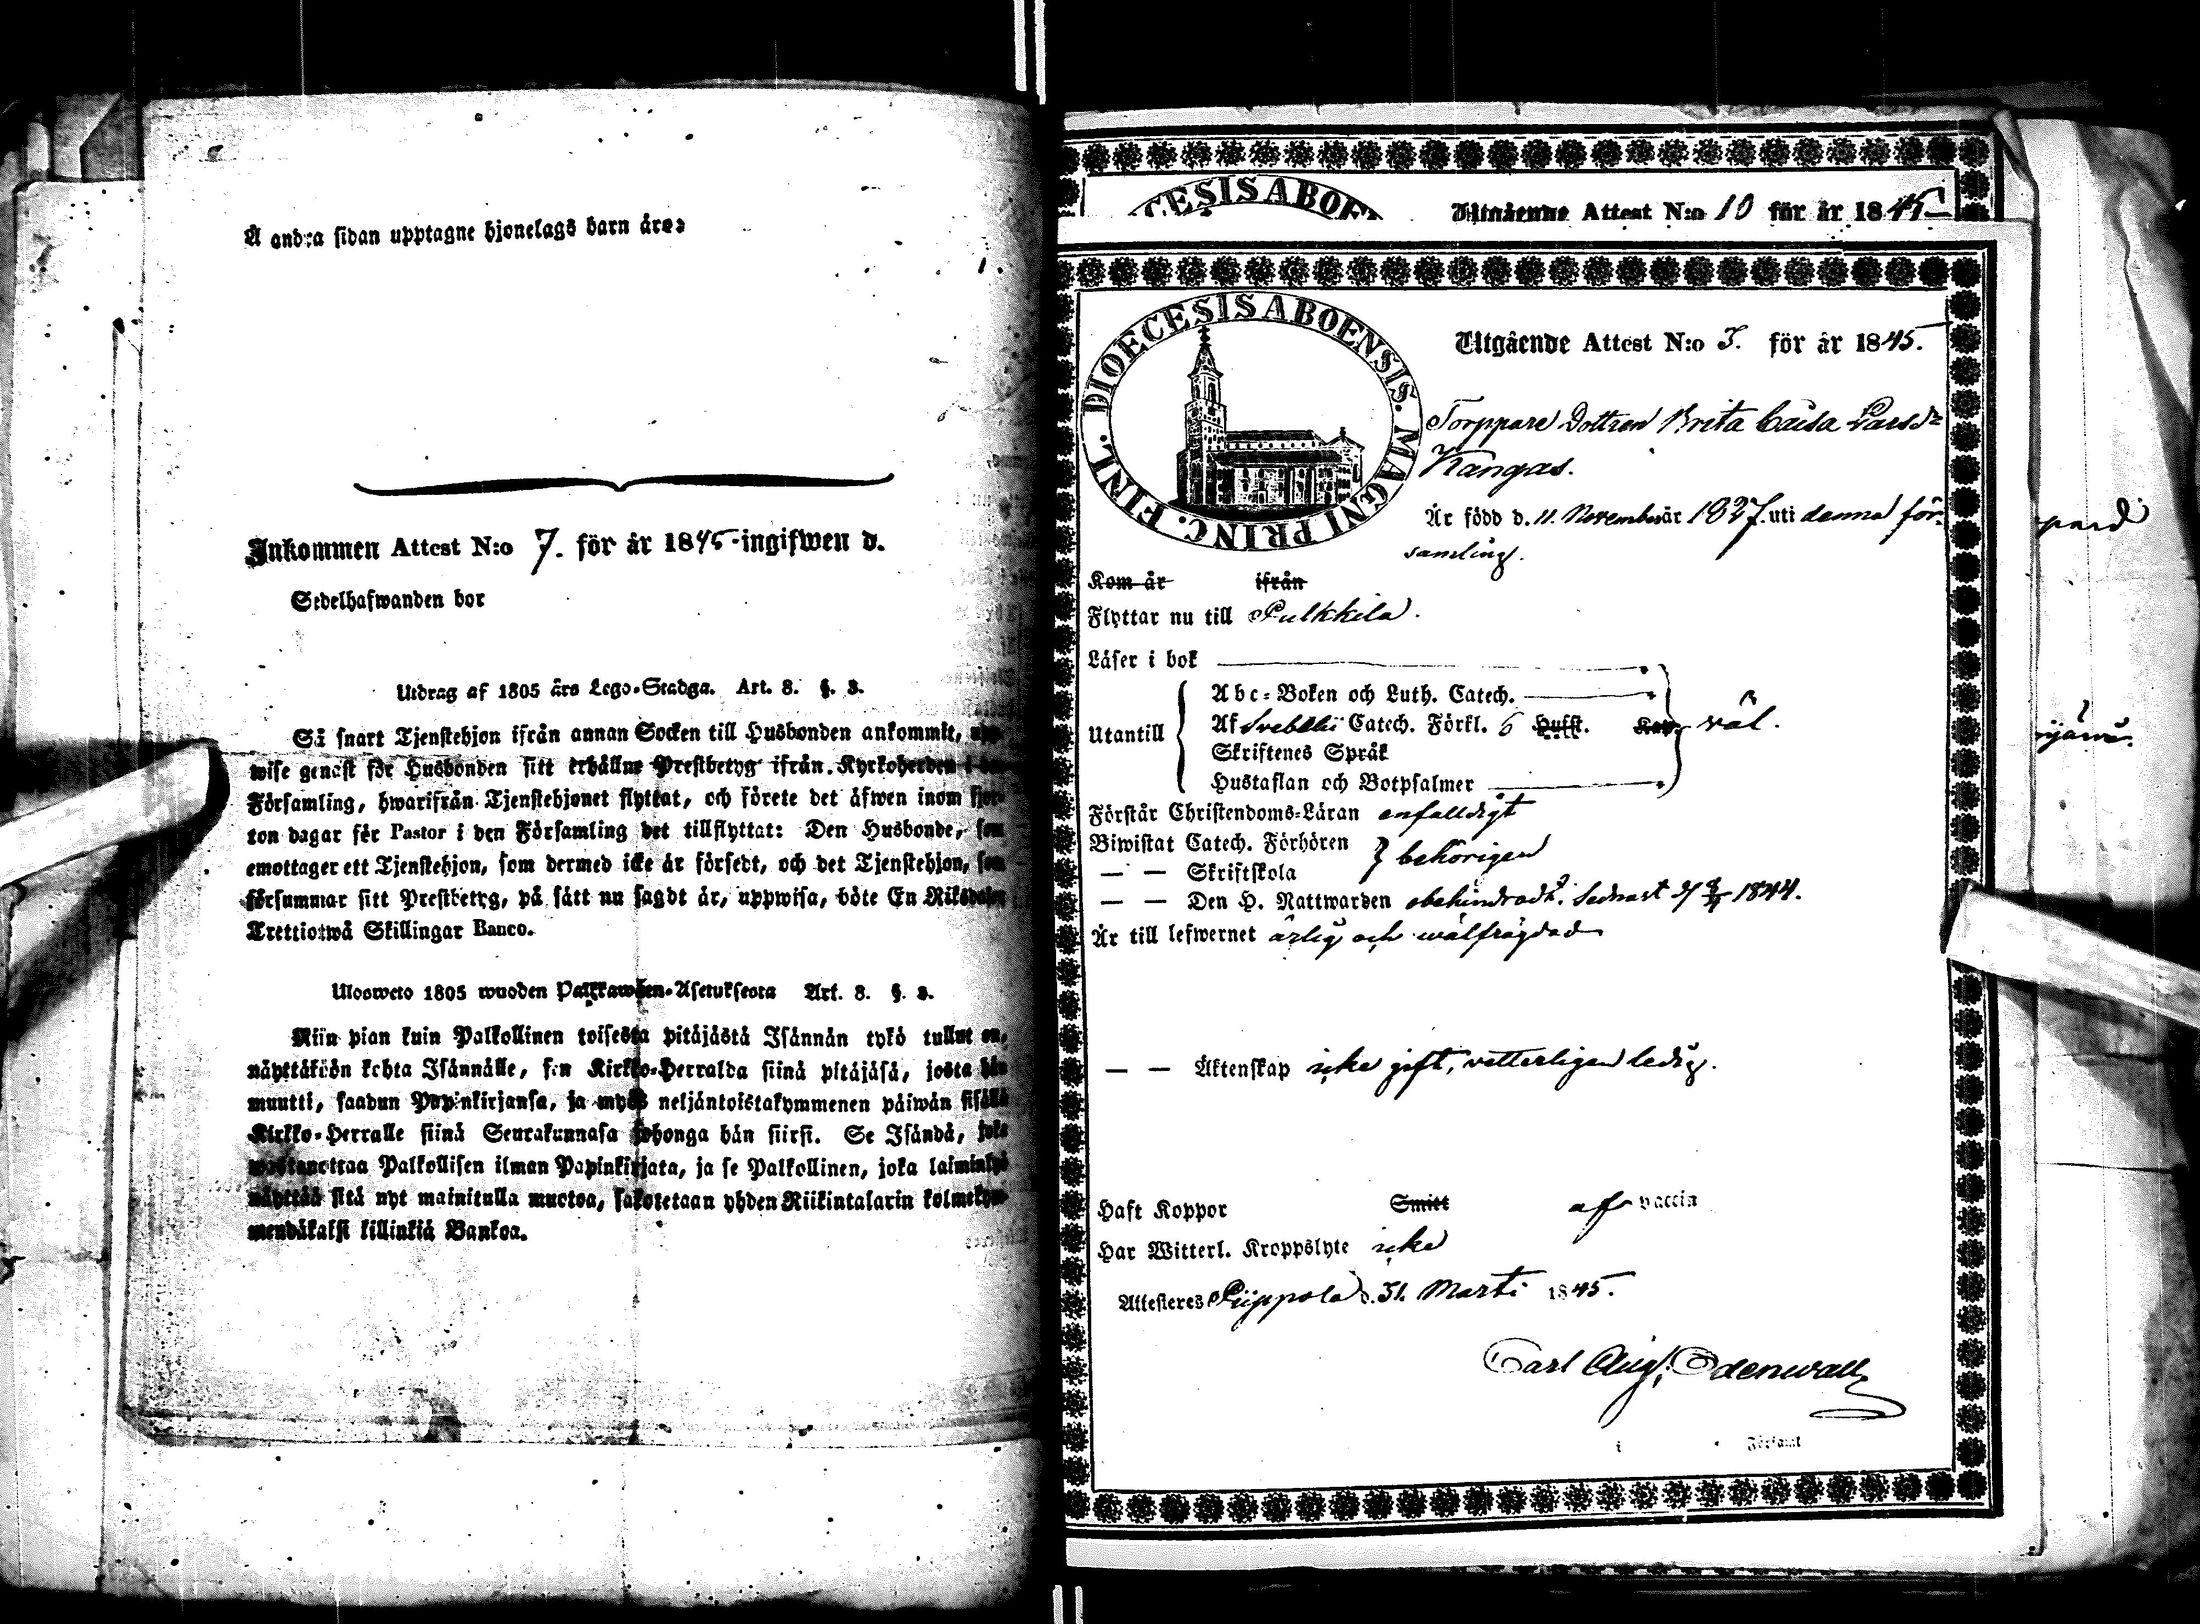 Å andra sidan upptagne hjonelags barn äro:
Inkommen Attest N:o 7. för år 1845 ingifwen d.
Sedelhafwanden bor
Utdrag af 1805 års Lego-Stadga. Art. 8. §. 3.
Så snart Tjenstehjon ifrån annan Socken till Husbonden ankommit,
wise genast för Husbonden sitt erhållne Prestbetyg ifrån Kyrkoherden i
Församling, hwarifrån Tjenstehjonet flyttat, och förete det äfwen inom fjor-
ton dagar för Pastor i den Församling det tillflyttat: Den Husbonde, som
emottager ett Tjenstehjon, som dermed icke är försedt, och det Tjenstehjon, som
försummar sitt Prestbetyg, på sätt nu sagdt är, uppwisa, böte En Riksdaler
Trettiotwå Skillingar Banco.
Ulosweto 1805 wuoden Palkkawäen-Asetuksesta Art. 8. §. 3.
Niin pian kuin Palkollinen toisesta pitäjästä Isännän tykö tullut on,
näyttäköön kohta Isännälle, sen Kirkko-Herralda siinä pitäjäsä, josta hän
muutti, saadun Papinkirjansa, ja myös neljäntoistakymmenen päiwän sisällä
Kirkko-Herralle siinä Seurakunnasa johonga hän siirsi. Se Isändä, joka
wastanottaa Palkollisen ilman Papinkirjata, ja se Palkollinen, joka laiminlyö
näyttää sitä nyt mainitulla muotoa, sakotetaan yhden Riikintalarin kolmekym-
mendäkaksi killinkiä Bankoa.
CESIS ABOE
Utgående Attest N:o 10 för år 1845
DIOECESIS ABOENSIS. MAGNI PRINC. FINL.
Utgående Attest N:o 3. för år 1845.
Torppare Dottren Brita Caisa Larsdr
Kangas.
Är född d. 11. November år 1827. uti denna för-
samling.
Kom år ifrån
Flyttar nu till Pulkkila.
Läser i bok
Abc-Boken och Luth. Catech.
Utantill Af Svebelii Catech. Förkl. 6 Hufst. Kap. väl.
Skriftenes Språk
Hustaflan och Botpsalmer
Förstår Christendoms-Läran enfalldigt
Biwistat Catech. Förhören behörigen
— — Skriftskola
— — Den H. Nattwarden obehindradt. Sednast d. 1844.
Är till lefwernet ärlig och wälfrägdad
— — Äktenskap icke gift, vetterligen ledig.
Haft Koppor Smitt af vaccin
Har Witterl. Kroppslyte icke
Attesteres Piippola d. 31. Marti 1845.
Carl Aug. Odenwall
i Församl